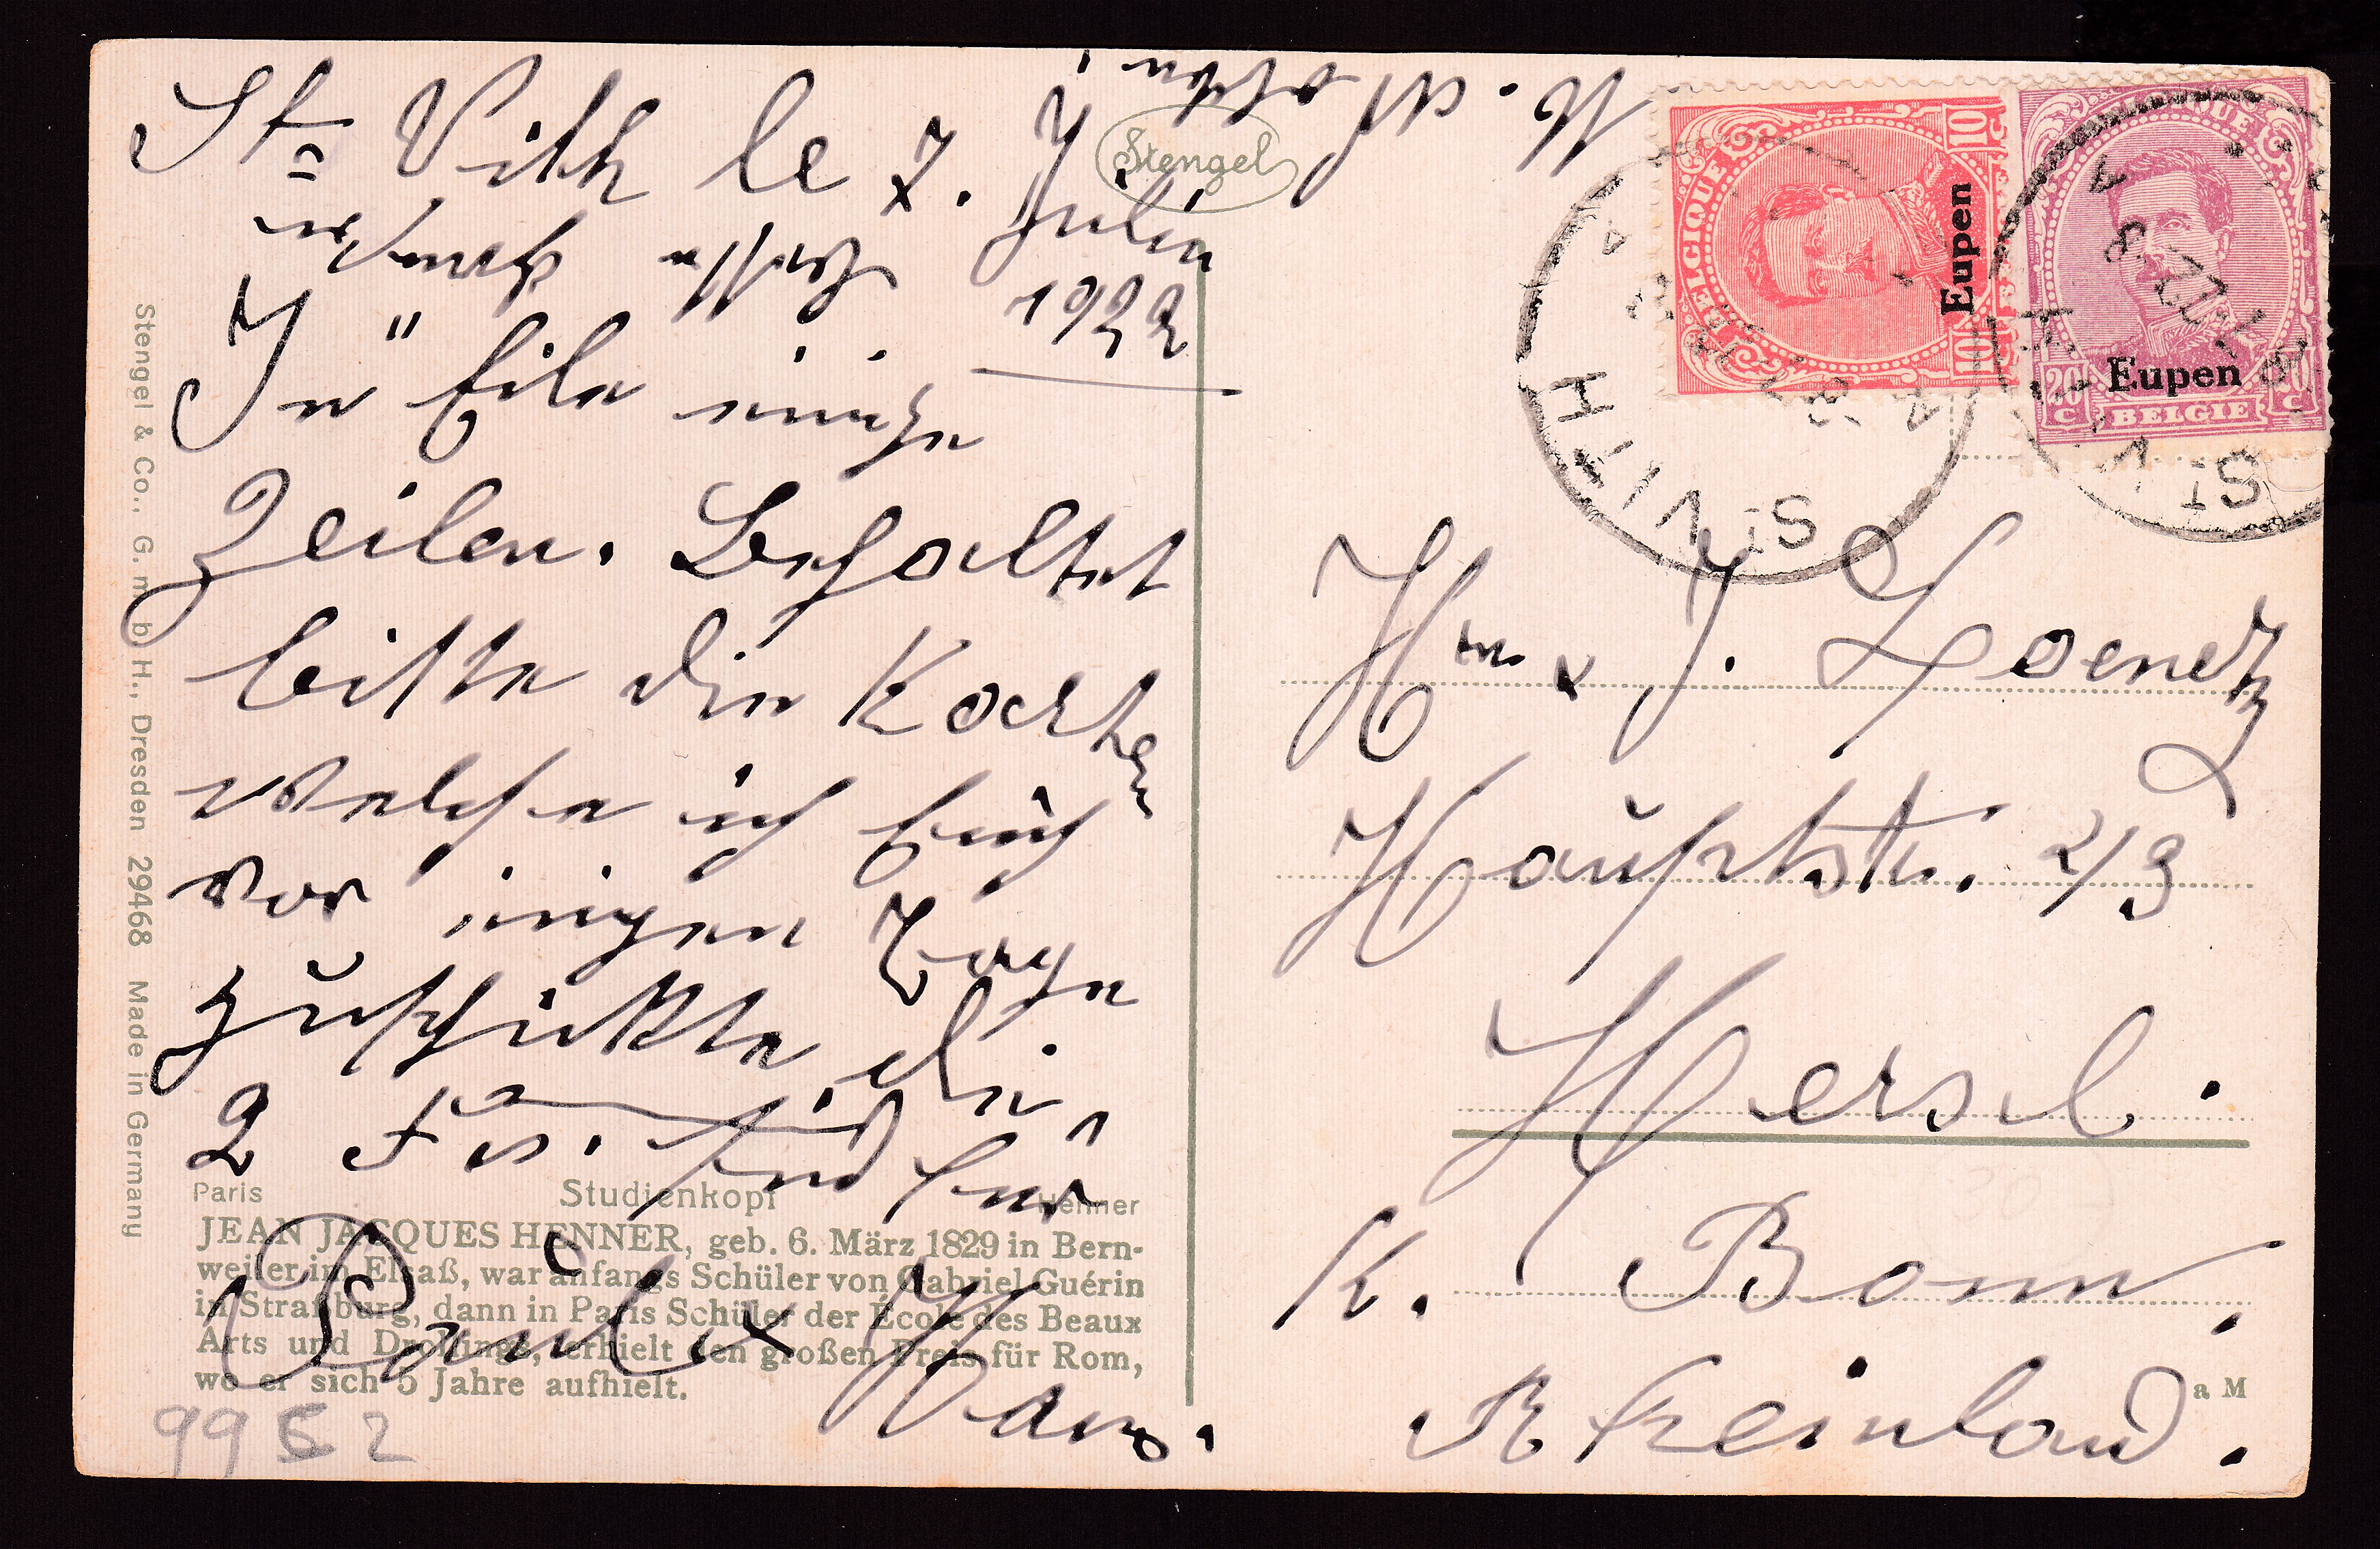 St Vith le 7. Juli
1922
In Eile einige
Zeilen. Behaltet
bitte die Karten
welche ich Euch
vor einigen Tage
zuschickte, die
2 Fr. sind für
Paul x Han.
Stengel
Stengel & Co., G. m. b. H., Dresden 29468 Made in Germany
Paris Studienkopf Henner
JEAN JACQUES HENNER, geb. 6. März 1829 in Bern-
weiler im Elsaß, war anfangs Schüler von Gabriel Guérin
in Straßburg, dann in Paris Schüler der École des Beaux
Arts und Drollings, erhielt den großen Preis für Rom,
wo er sich 5 Jahre aufhielt.
BELGIQUE
10 C
Eupen
BELGIQUE
20 C
Eupen
BELGIE
ST VITH
ST VITH
Hrn x J. Loenertz
Hauptstr. 2/3
Hersel.
K. Bonn.
Rheinland.
a M